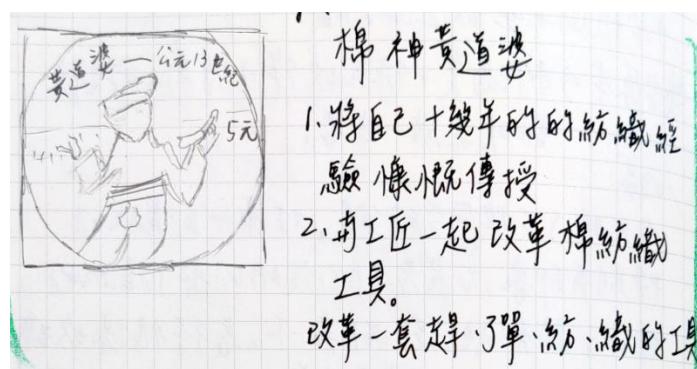 黃道婆—公元13世紀
5元
棉神黃道婆
1.將自己十幾年的的紡織經
驗慷慨傳授
2.与工匠一起改革棉紡織
工具。
改革一套趕、彈、紡、織的工具